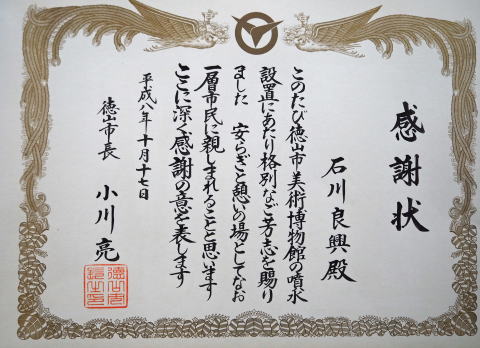 感謝状
石川良興殿
このたび徳山市美術博物館の噴水
設置にあたり格別なご芳志を賜り
ました 安らぎと憩いの場としてなお
一層市民に親しまれることと思います
ここに深く感謝の意を表します
平成八年十月十七日
徳山市長 小川亮